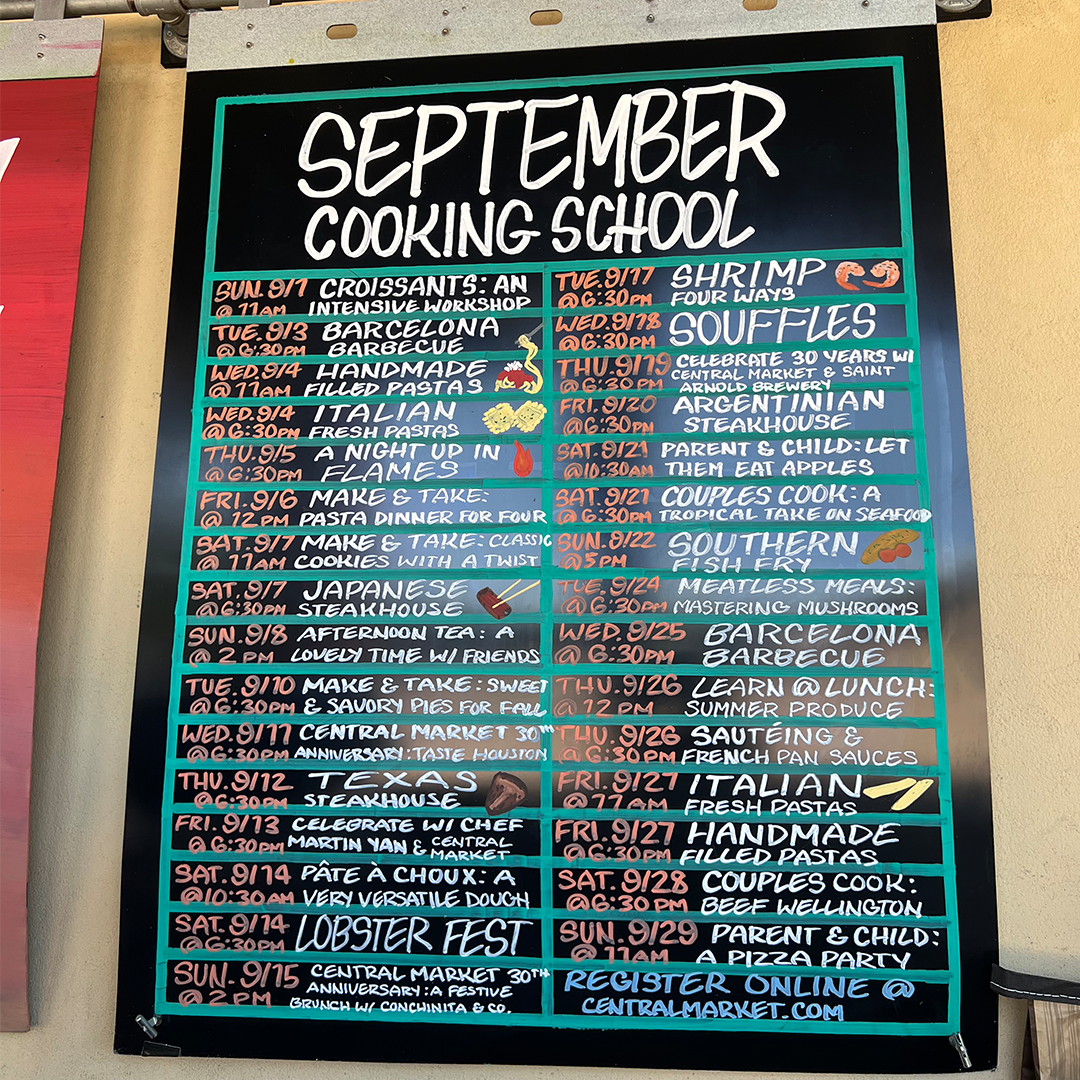 SEPTEMBER
COOKING SCHOOL
SUN. 9/1 CROISSANTS: AN
@ 11AM INTENSIVE WORKSHOP
TUE. 9/3 BARCELONA
@ 6:30PM BARBECUE
WED. 9/4 HANDMADE
@ 11AM FILLED PASTAS
WED. 9/4 ITALIAN
@ 6:30PM FRESH PASTAS
THU. 9/5 A NIGHT UP IN
@ 6:30PM FLAMES
FRI. 9/6 MAKE & TAKE:
@ 12 PM PASTA DINNER FOR FOUR
SAT. 9/7 MAKE & TAKE: CLASSIC
@ 11AM COOKIES WITH A TWIST
SAT. 9/7 JAPANESE
@ 6:30PM STEAKHOUSE
SUN. 9/8 AFTERNOON TEA: A
@ 2 PM LOVELY TIME W/ FRIENDS
TUE. 9/10 MAKE & TAKE: SWEET
@ 6:30PM & SAVORY PIES FOR FALL
WED. 9/11 CENTRAL MARKET 30TH
@ 6:30PM ANNIVERSARY: TASTE HOUSTON
THU. 9/12 TEXAS
@ 6:30PM STEAKHOUSE
FRI. 9/13 CELEBRATE W/ CHEF
@ 6:30PM MARTIN YAN & CENTRAL
MARKET
SAT. 9/14 PÂTE À CHOUX: A
@ 10:30AM VERY VERSATILE DOUGH
SAT. 9/14 LOBSTER FEST
@ 6:30PM
SUN. 9/15 CENTRAL MARKET 30TH
@ 2 PM ANNIVERSARY: A FESTIVE
BRUNCH W/ CONCHINITA & CO.
TUE. 9/17 SHRIMP
@ 6:30PM FOUR WAYS
WED. 9/18 SOUFFLES
@ 6:30PM
THU. 9/19 CELEBRATE 30 YEARS W/
@ 6:30 PM CENTRAL MARKET & SAINT
ARNOLD BREWERY
FRI. 9/20 ARGENTINIAN
@ 6:30PM STEAKHOUSE
SAT. 9/21 PARENT & CHILD: LET
@ 10:30AM THEM EAT APPLES
SAT. 9/21 COUPLES COOK: A
@ 6:30PM TROPICAL TAKE ON SEAFOOD
SUN. 9/22 SOUTHERN
@ 5PM FISH FRY
TUE. 9/24 MEATLESS MEALS:
@ 6:30PM MASTERING MUSHROOMS
WED. 9/25 BARCELONA
@ 6:30PM BARBECUE
THU. 9/26 LEARN @ LUNCH:
@ 12 PM SUMMER PRODUCE
THU. 9/26 SAUTÉING &
@ 6:30PM FRENCH PAN SAUCES
FRI. 9/27 ITALIAN
@ 11 AM FRESH PASTAS
FRI. 9/27 HANDMADE
@ 6:30PM FILLED PASTAS
SAT. 9/28 COUPLES COOK:
@ 6:30 PM BEEF WELLINGTON
SUN. 9/29 PARENT & CHILD:
@ 11AM A PIZZA PARTY
REGISTER ONLINE @
CENTRALMARKET.COM